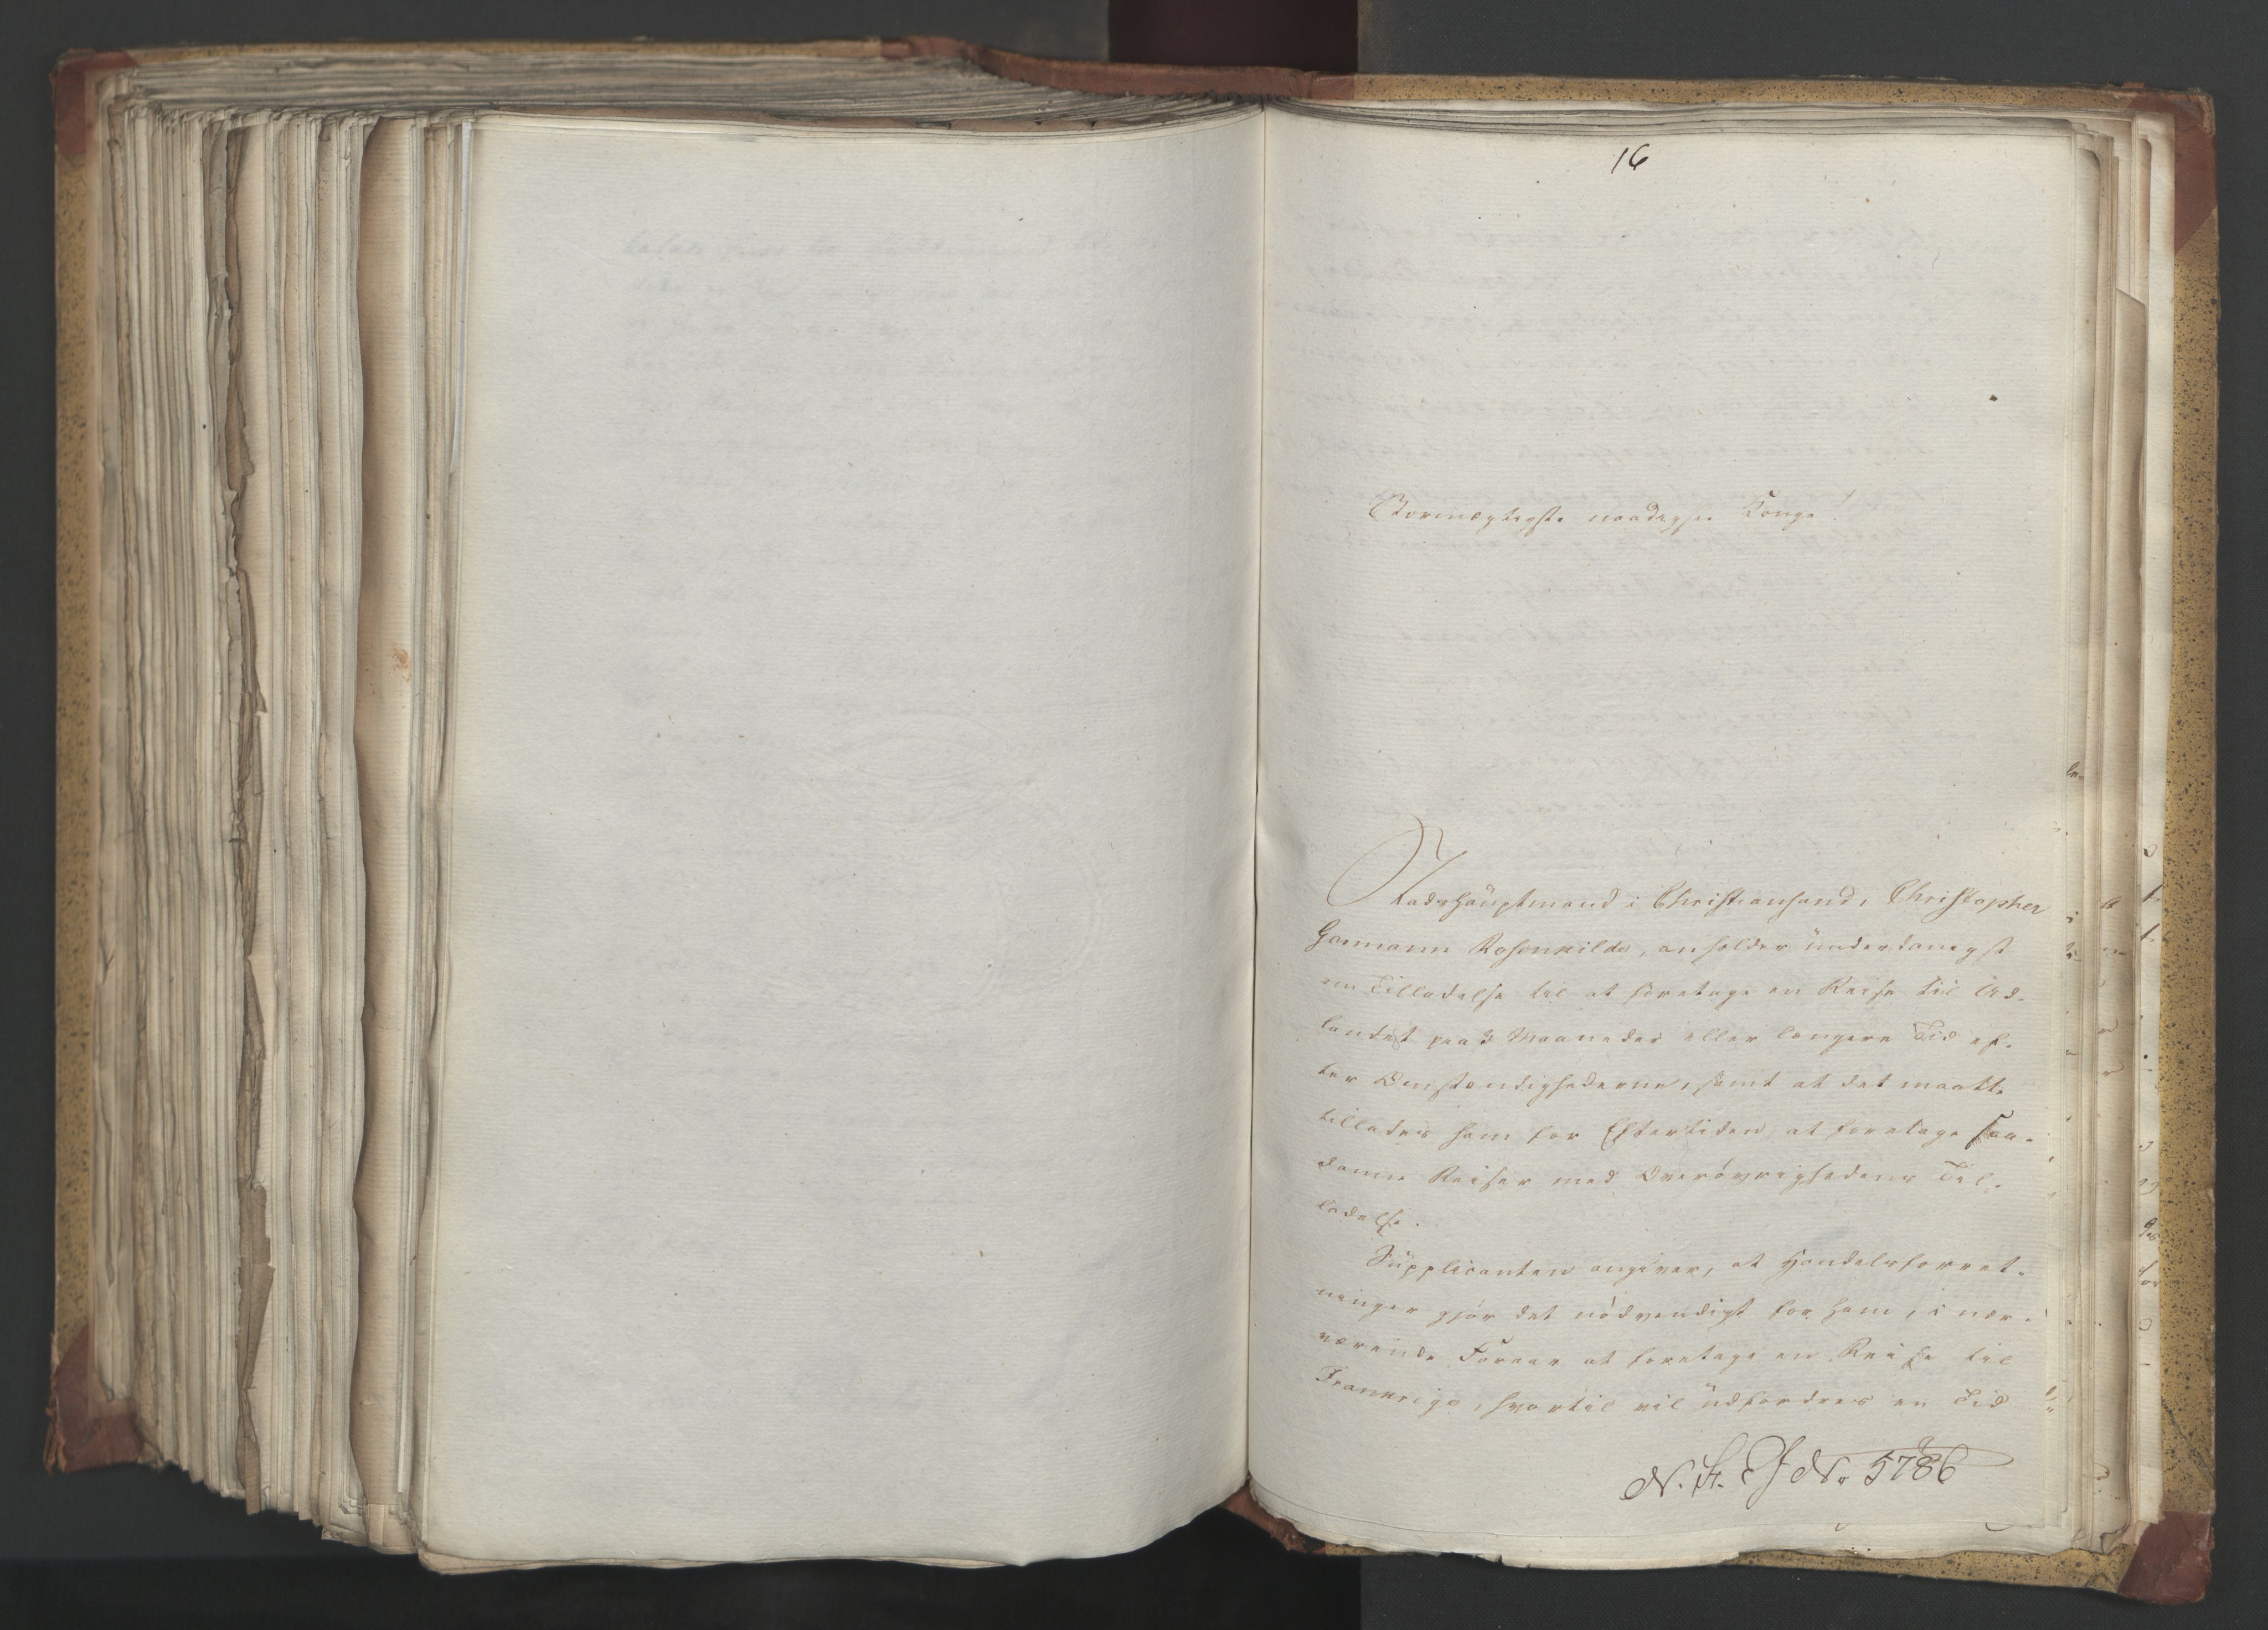 16
Stormægtigste naadigste Konge!
Stadshauptmand i Christiansand, Christopher
Garmann Rosenkilde, anholder underdanigst
om Tilladelse til at foretage en Reise til Ud-
landet paa 3 Maaneder eller længere Tid ef-
ter Omstændighederne, samt at det maatte
tillades ham for Eftertiden at foretage saa-
danne Reiser med Overøvrighedens Til-
ladelse.
Supplicanten angiver, at Handelsforret-
ninger gjør det nødvendigt for ham, i nær-
værende Foraar at foretage en Reise til
Frankrige, hvortil vil udfordres en Tid
N. 5786